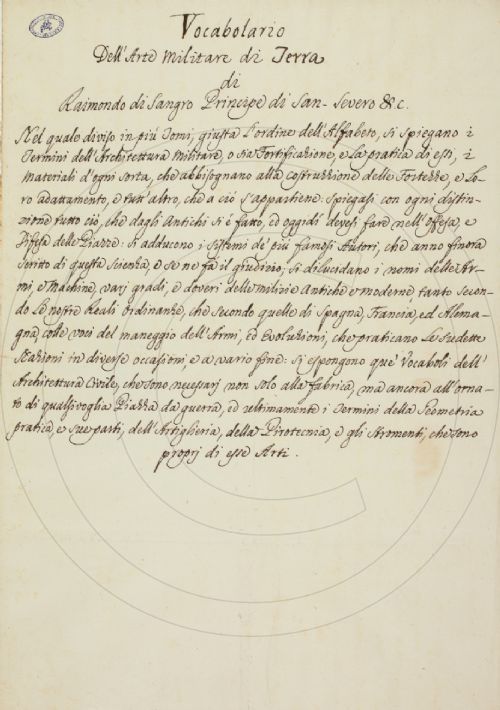 Vocabolario
Dell'Arte Militare di Terra
di
Raimondo di Sangro Principe di San-Severo &c.
Nel quale diviso in più Tomi, giusta l'ordine dell'Alfabeto, si spiegano i
Termini dell'Architettura Militare, o sia Fortificazione, e la pratica di essi, i
Materiali d'ogni sorta, che abbisognano alla costruzzione delle Fortezze, e lo-
ro adattamento, e tutt'altro, che a ciò s'appartiene: spiegasi con ogni distin-
zione tutto ciò, che dagli Antichi si è fatto, ed oggidì devesi fare nell'Offesa, e
Difesa delle Piazze: si adducono i sistemi de' più famosi Autori, che anno finora
scritto di questa scienza, e se ne fa il giudizio; si dilucidano i nomi delle Ar-
mi, e Machine, varj gradi, e doveri delle milizie Antiche e moderne, tanto secon-
do le nostre Reali Ordinanze, che secondo quelle di Spagna, Francia, ed Alema-
gna, colle voci del maneggio dell'Armi, ed Evoluzioni, che praticano le sudette
Nazioni in diverse occasioni, e a vario fine: si espongono que' Vocaboli dell'
Architettura Civile, che sono necessarj non solo alla fabrica, ma ancora all'orna-
to di qualsivoglia Piazza da guerra, ed ultimamente i Termini della Geometria
pratica, e sue parti, dell'Artigleria, della Pirotecnia, e gli Stromenti, che sono
proprj di esse Arti.